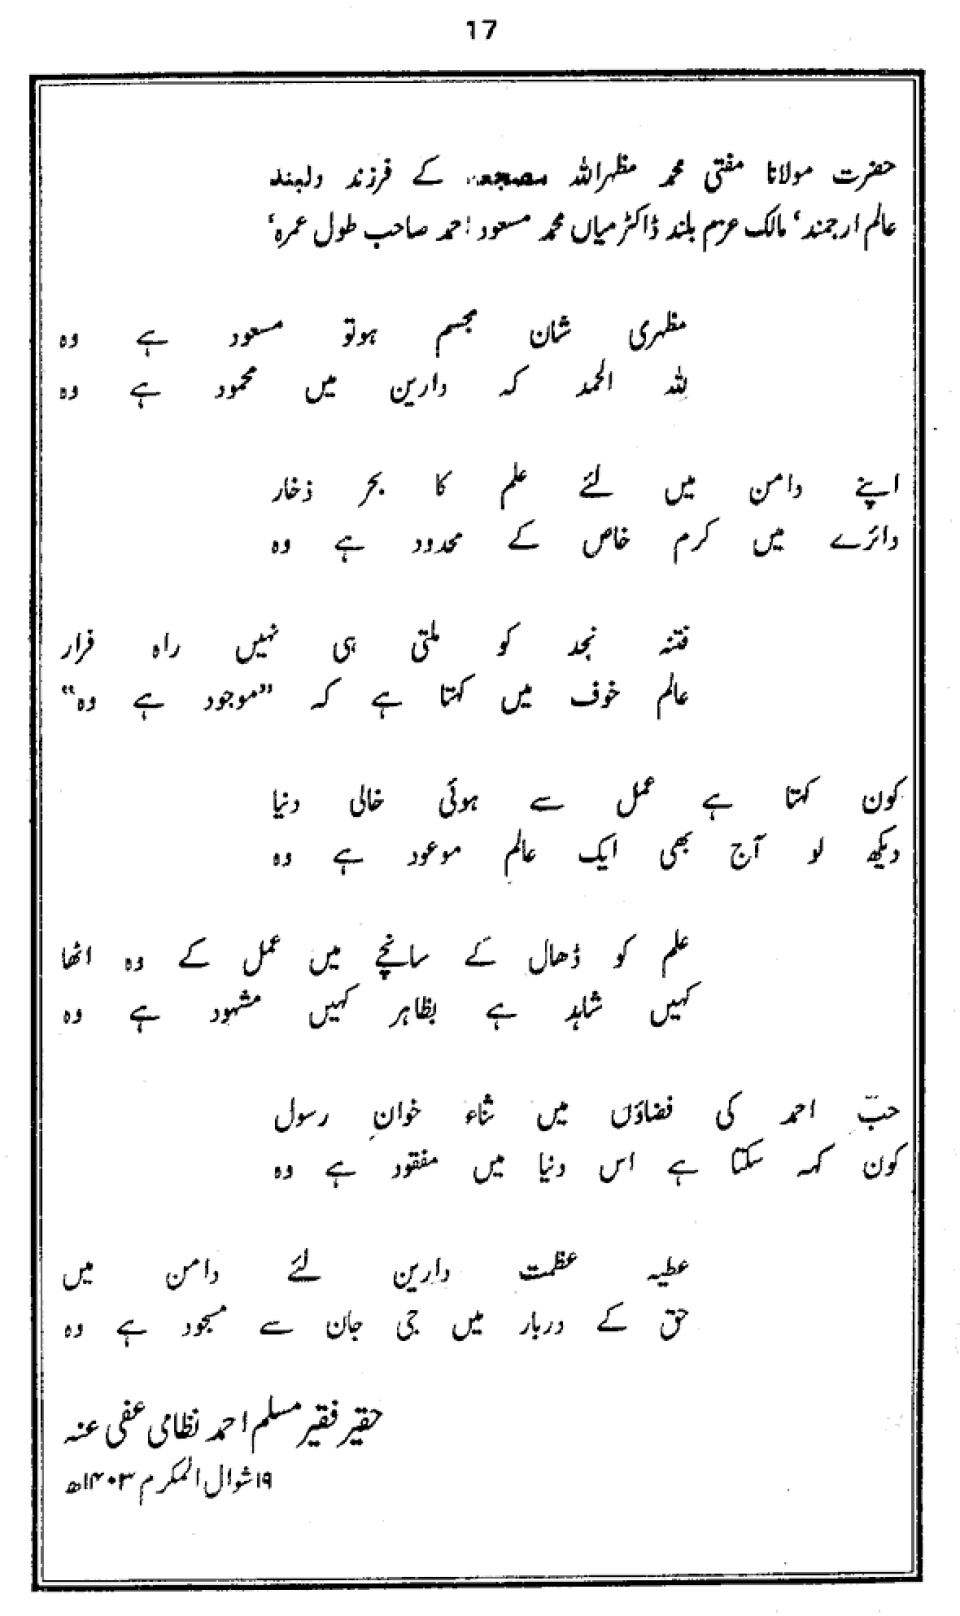 17
حضرت مولانا مفتی محمد مظہراللہ کے فرزند دلبند
عالم ارجمند، مالک عزم بلند ڈاکٹر میاں محمد مسعود احمد صاحب طول عمرہ،
مظہری شان مجسم ہوتو مسعود ہے وہ
للہ الحمد کہ دارین میں محمود ہے وہ
اپنے دامن میں لئے علم کا بحر ذخار
دائرے میں کرم خاص کے محدود ہے وہ
فتنہ نجد کو ملتی ہی نہیں راہ فرار
عالم خوف میں کہتا ہے کہ ”موجود ہے وہ“
کون کہتا ہے عمل سے ہوئی خالی دنیا
دیکھ لو آج بھی ایک عالم موعود ہے وہ
علم کو ڈھال کے سانچے میں عمل کے وہ اٹھا
کہیں شاہد ہے بظاہر کہیں مشہود ہے وہ
حبّ احمد کی فضاؤں میں ثناء خوانِ رسول
کون کہہ سکتا ہے اس دنیا میں مفقود ہے وہ
عطیہ عظمت دارین لئے دامن میں
حق کے دربار میں جی جان سے مسجود ہے وہ
حقیر فقیر مسلم احمد نظامی عفی عنہ
۱۹ شوال المکرم ۱۴۰۳ھ